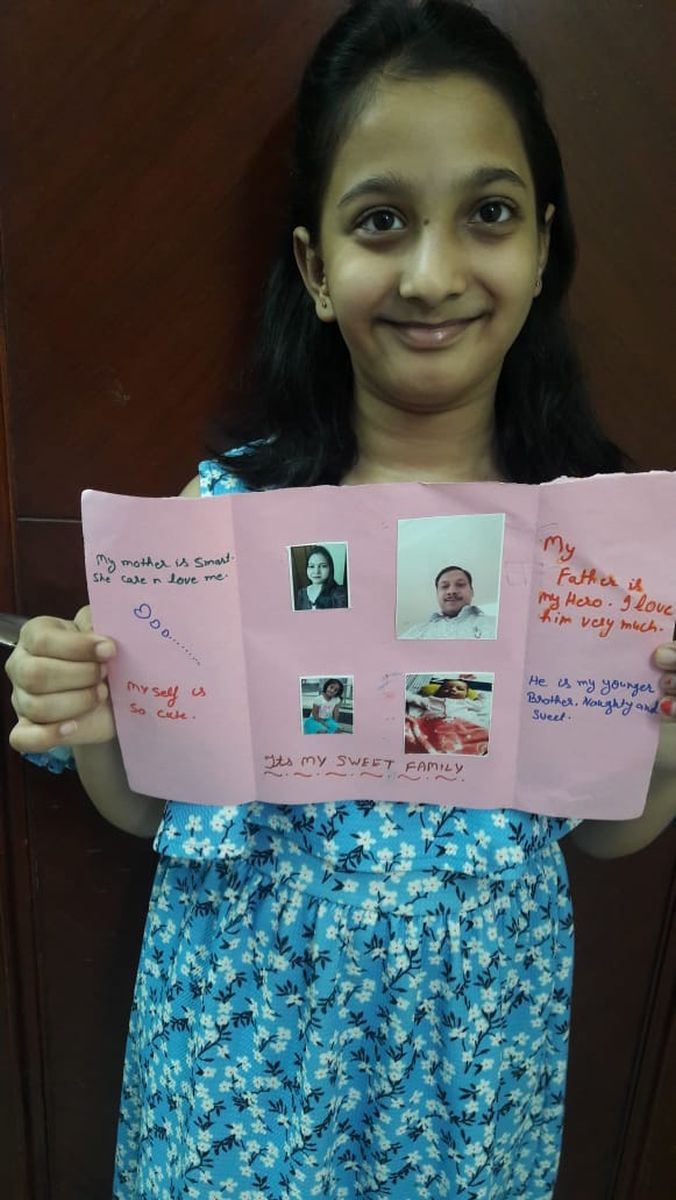 My mother is Smart.
She care n love me.
My self is
so cute.
Its MY SWEET FAMILY
My
Father is
my Hero. I love
him very much.
He is my younger
Brother. Naughty and
Sweet.